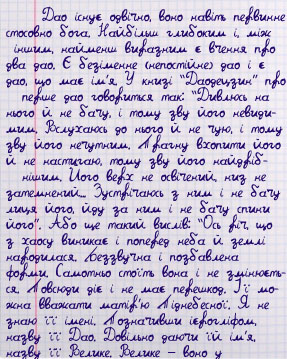 Дао існує одвічно, воно навіть первинне
стосовно бога. Найбільш глибоким і, між
іншим, найменш виразним є вчення про
два дао. Є безіменне (непостійне) дао і є
дао, що має ім'я. У книзі "Даодецзин" про
перше дао говориться так: "Дивлюсь на
нього й не бачу, і тому зву його невиди-
мим. Вслухаюсь до нього й не чую, і тому
зву його нечутним. Прагну вхопити його
й не настигаю, тому зву його найдріб-
нішим. Його верх не освічений, низ не
затемнений... Зустрічаюсь з ним і не бачу
лиця його, йду за ним і не бачу спини
його". Або ще такий вислів: "Ось річ, що
з хаосу виникає і поперед неба й землі
народилася. Беззвучна і позбавлена
форми. Самотньо стоїть вона і не змінюєть-
ся. Повсюди діє і не має перешкод. Її мо-
жна вважати матір'ю Піднебесної. Я не
знаю її імені. Позначивши ієрогліфом,
назву її Дао. Довільно даючи їй ім'я,
назву її Велике. Велике – воно у